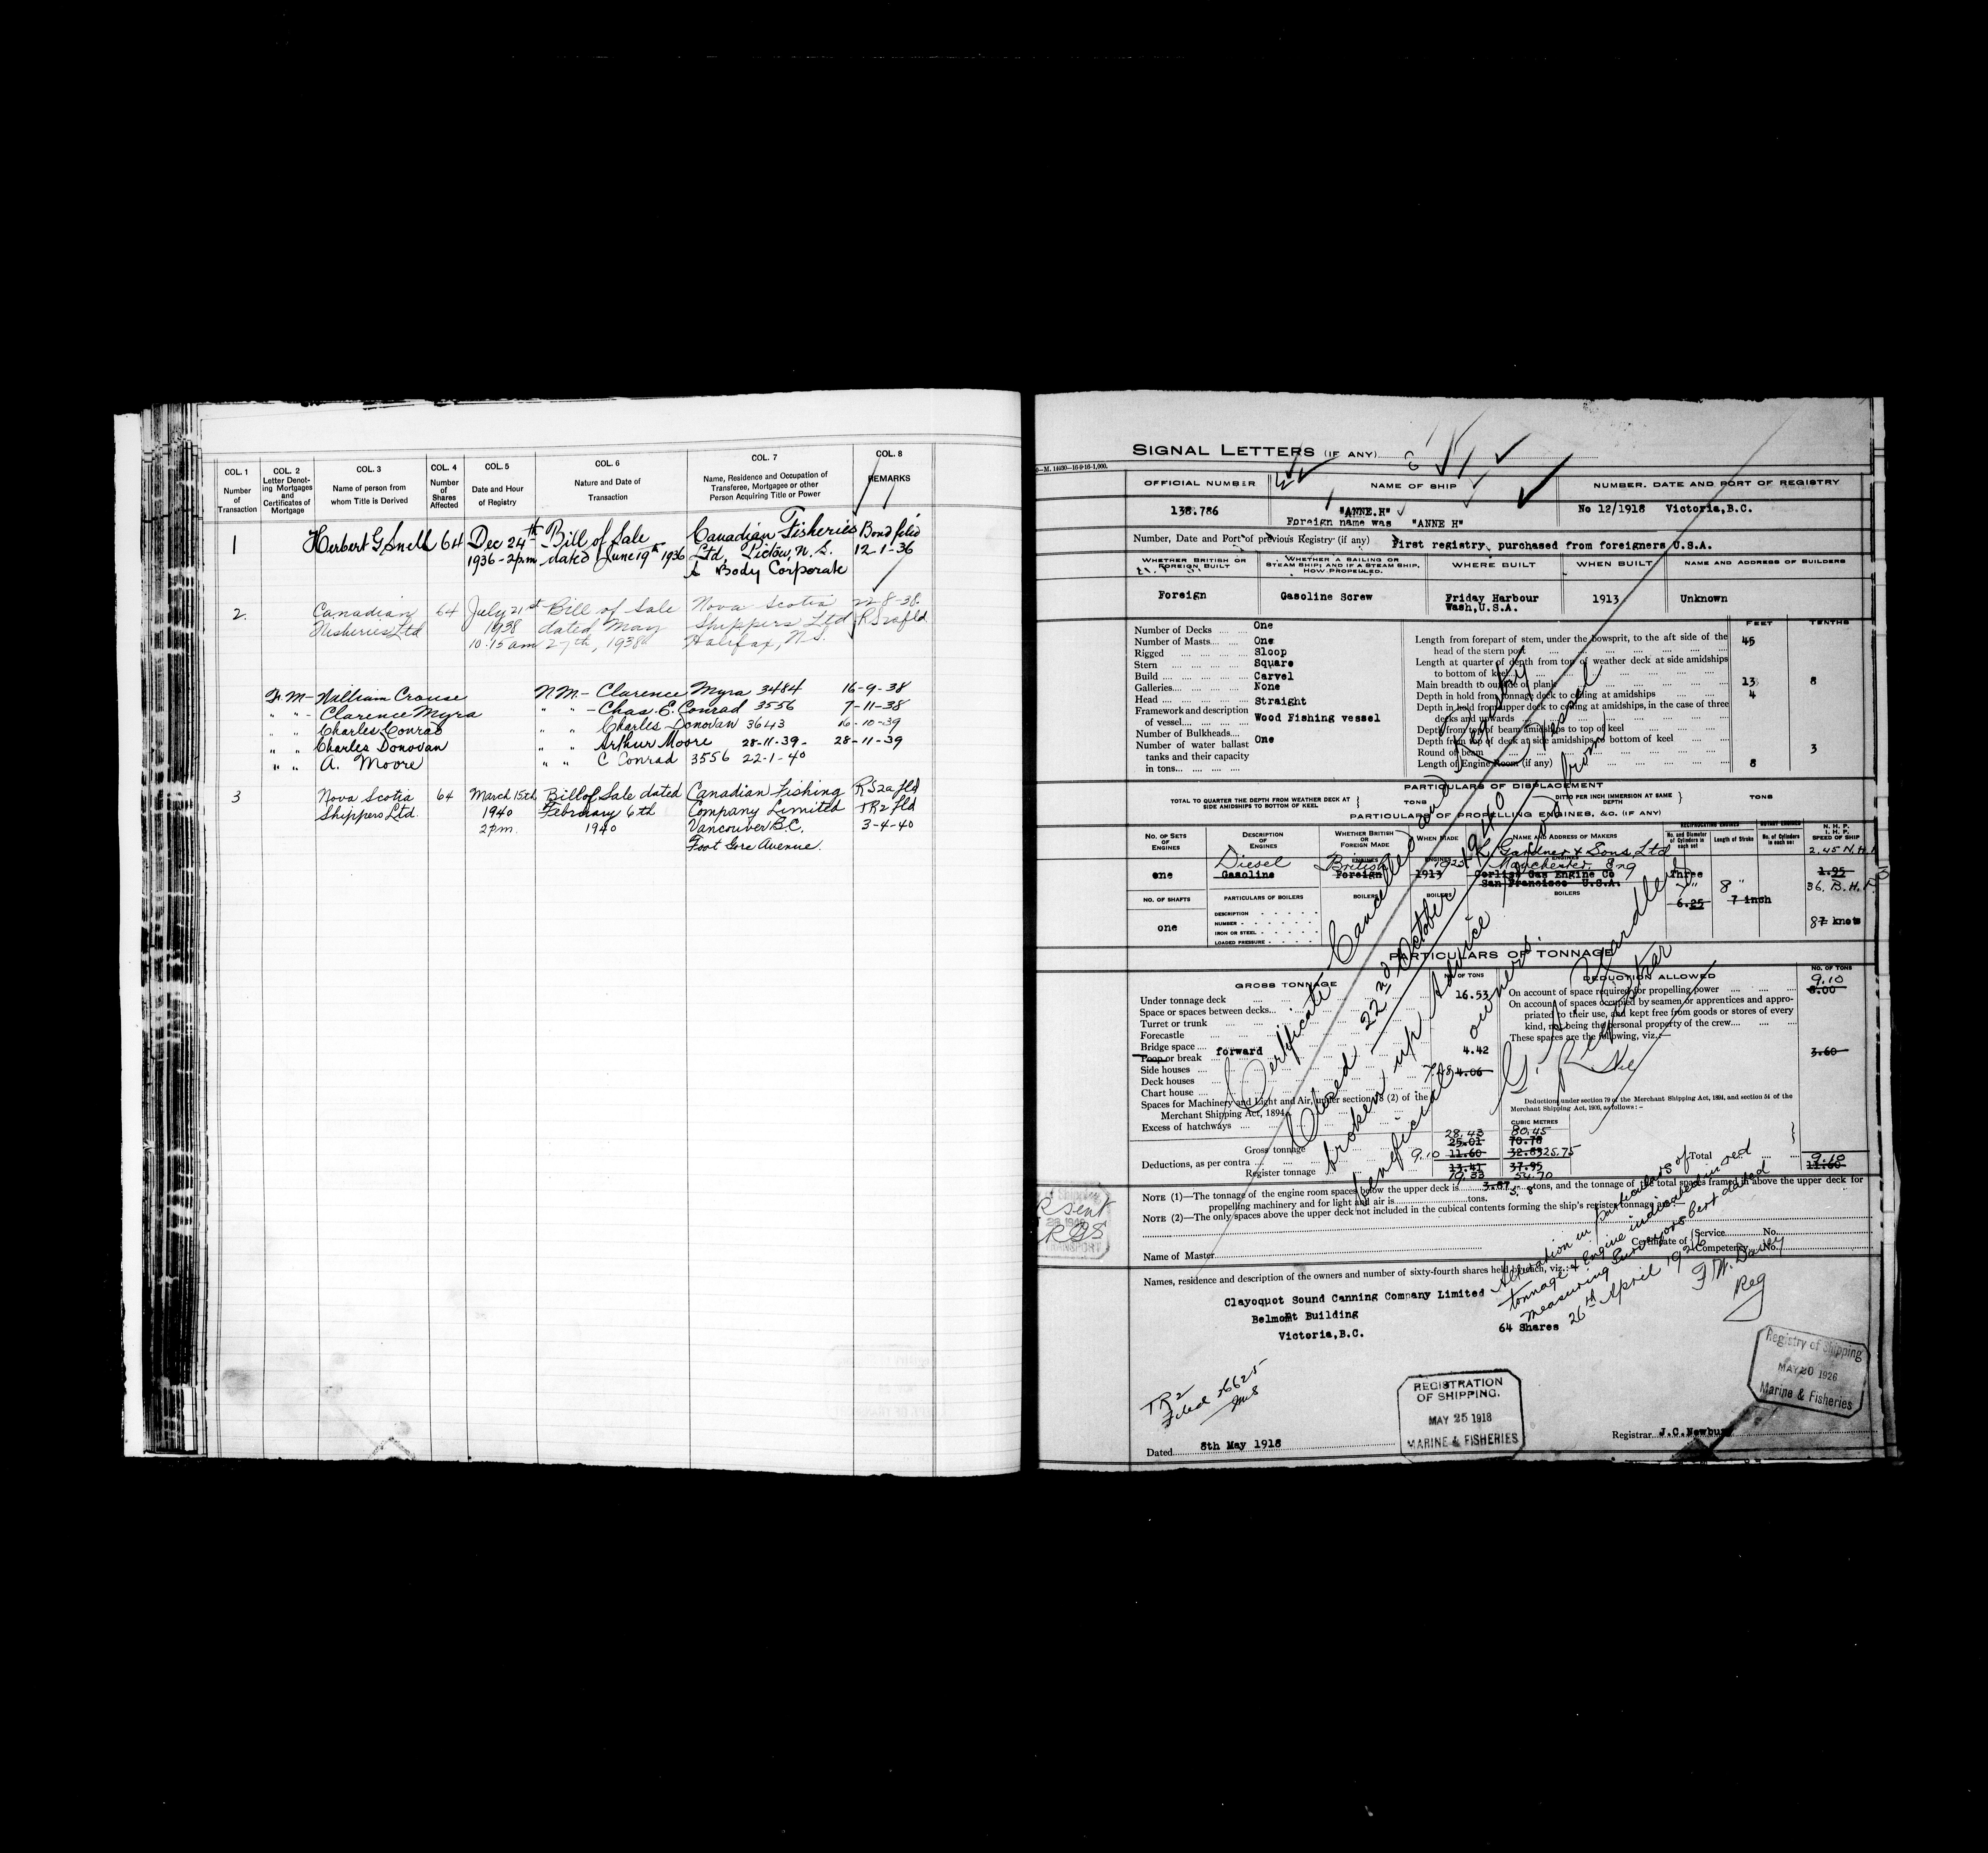 COL. 1 COL. 2 COL. 3 COL. 4 COL. 5 COL. 6 COL. 7 COL. 8
Number of Transaction
Letter Denoting Mortgages and Certificates of Mortgage
Name of person from whom Title is Derived
Number of Shares Affected
Date and Hour of Registry
Nature and Date of Transaction
Name, Residence and Occupation of Transferee, Mortgagee or other Person Acquiring Title or Power
REMARKS
1 Herbert G. Snell 64 Dec 24th Bill of Sale Canadian Fisheries Bond filed
1936 - 2pm dated June 19th 1936 Ltd, Pictou, N.S. 12-1-36
A Body Corporate
2. Canadian 64 July 21st Bill of Sale Nova Scotia 22-8-38.
Fisheries Ltd 1938 dated May Shippers Ltd RS2afld
10.15 am 27th, 1938 Halifax, N.S.
F.M- William Crouse N.M.- Clarence Myra 3484 16-9-38
" " - Clarence Myra " " - Chas. E. Conrad 3556 7-11-38
" " Charles Conrad " " Charles Donovan 3643 16-10-39
" " Charles Donovan " " Arthur Moore 28-11-39 - 28-11-39
" " A. Moore " " C Conrad 3556 22-1-40
3 Nova Scotia 64 March 15th Bill of Sale dated Canadian Fishing RS2a fld
Shippers Ltd. 1940 February 6th Company Limited TR2 fld
2pm. 1940 Vancouver B.C. 3-4-40
Foot Gore Avenue.
SIGNAL LETTERS (IF ANY)
M. 14030-16-9-16-1,000.
OFFICIAL NUMBER NAME OF SHIP NUMBER, DATE AND PORT OF REGISTRY
138.786 "ANNE.H" No 12/1918 Victoria,B.C.
Foreign name was "ANNE H"
Number, Date and Port of previous Registry (if any) First registry, purchased from foreigners U.S.A.
WHETHER BRITISH OR FOREIGN BUILT
WHETHER A SAILING OR STEAM SHIP; AND IF A STEAM SHIP, HOW PROPELLED.
WHERE BUILT WHEN BUILT NAME AND ADDRESS OF BUILDERS
Foreign Gasoline Screw Friday Harbour 1913 Unknown
Wash,U.S.A.
FEET TENTHS
Number of Decks One
Number of Masts One
Rigged Sloop
Stern Square
Build Carvel
Galleries None
Head Straight
Framework and description of vessel Wood Fishing vessel
Number of Bulkheads
Number of water ballast One
tanks and their capacity
in tons
Length from forepart of stem, under the bowsprit, to the aft side of the head of the stern post 45
Length at quarter of depth from top of weather deck at side amidships to bottom of keel
Main breadth to outside of plank 13 8
Depth in hold from tonnage deck to ceiling at amidships 4
Depth in hold from upper deck to ceiling at amidships, in the case of three decks and upwards
Depth from top of beam amidships to top of keel
Depth from top of deck at side amidships to bottom of keel
Round of beam 3
Length of Engine Room (if any) 8
PARTICULARS OF DISPLACEMENT
TOTAL TO QUARTER THE DEPTH FROM WEATHER DECK AT SIDE AMIDSHIPS TO BOTTOM OF KEEL } TONS
DITTO PER INCH IMMERSION AT SAME DEPTH } TONS
PARTICULARS OF PROPELLING ENGINES, &C. (IF ANY)
NO. OF SETS OF ENGINES
DESCRIPTION OF ENGINES
WHETHER BRITISH OR FOREIGN MADE
WHEN MADE
NAME AND ADDRESS OF MAKERS
RECIPROCATING ENGINES
No. and Diameter of Cylinders in each set
Length of Stroke
ROTARY ENGINES
No. of Cylinders in each set
N. H. P. I. H. P. SPEED OF SHIP
Diesel British 1925 L. Gardner & Sons Ltd 2.45 N.H.P
Manchester. Eng
one Gasoline Foreign 1913 Corliss Gas Engine Co Three 1.95
San Francisco U.S.A. 36. B.H.P.
NO. OF SHAFTS PARTICULARS OF BOILERS BOILERS BOILERS BOILERS
6.25 8" 7 inch
DESCRIPTION
NUMBER
one IRON OR STEEL 8 7 knots
LOADED PRESSURE
PARTICULARS OF TONNAGE
GROSS TONNAGE NO. OF TONS DEDUCTION ALLOWED NO. OF TONS
9.10
Under tonnage deck 16.53 On account of space required for propelling power 8.00
Space or spaces between decks
Turret or trunk
Forecastle
Bridge space forward
Poop or break 4.42
Side houses
Deck houses 7.48 4.06
Chart house
Spaces for Machinery and Light and Air, under section 78 (2) of the
Merchant Shipping Act, 1894
Excess of hatchways
On account of spaces occupied by seamen or apprentices and appropriated to their use, and kept free from goods or stores of every kind, not being the personal property of the crew
These spaces are the following, viz.:—
3.60
Deductions under section 79 of the Merchant Shipping Act, 1894, and section 54 of the Merchant Shipping Act, 1906, as follows:—
CUBIC METRES
28.43 80.45
Gross tonnage 25.01 70.78
Deductions, as per contra 9.10 11.60 32.83 25.75 Total 9.10
11.60
Register tonnage 13.41 37.95
19.33 54.70
NOTE (1)—The tonnage of the engine room spaces below the upper deck is 3.87 5.8 tons, and the tonnage of the total spaces framed in above the upper deck for propelling machinery and for light and air is tons.
NOTE (2)—The only spaces above the upper deck not included in the cubical contents forming the ship's register tonnage are:—
Name of Master Certificate of {Service No. Competency No.
Names, residence and description of the owners and number of sixty-fourth shares held by each, viz.:—
Clayoquot Sound Canning Company Limited
Belmont Building
Victoria,B.C. 64 Shares
Alteration in particulars of
tonnage & Engine indicated in red
measuring Surveyors Cert dated
26th April 1926
Reg
Certificate Cancelled and Registry
Closed 22nd October 1940 Vessel
broken up Advice received from
beneficial owners.
Registrar
R sent
TRANSPORT
TR2
Filed 26625
REGISTRATION
OF SHIPPING.
MAY 25 1918
MARINE & FISHERIES
Registry of Shipping
MAY 20 1926
Marine & Fisheries
Dated 8th May 1918 Registrar J.C.Newbury